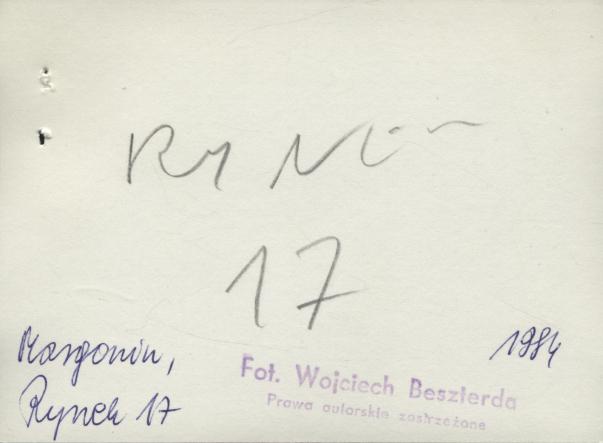 RYNEK
17
Margonin,
Rynek 17
1984
Fot. Wojciech Beszterda
Prawa autorskie zastrzeżone